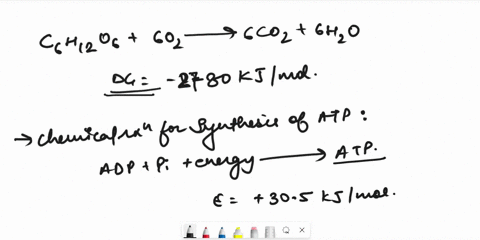 C₆H₁₂O₆ + 6O₂ ⟶ 6CO₂ + 6H₂O
DG = -2780 KJ/mol.
→ Chemical rxⁿ for Synthesis of ATP :
ADP + Pi + energy ⟶ ATP.
E = +30.5 KJ/mol.